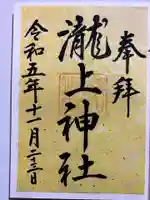 奉拝
瀧上神社
令和五年十一月二十三日